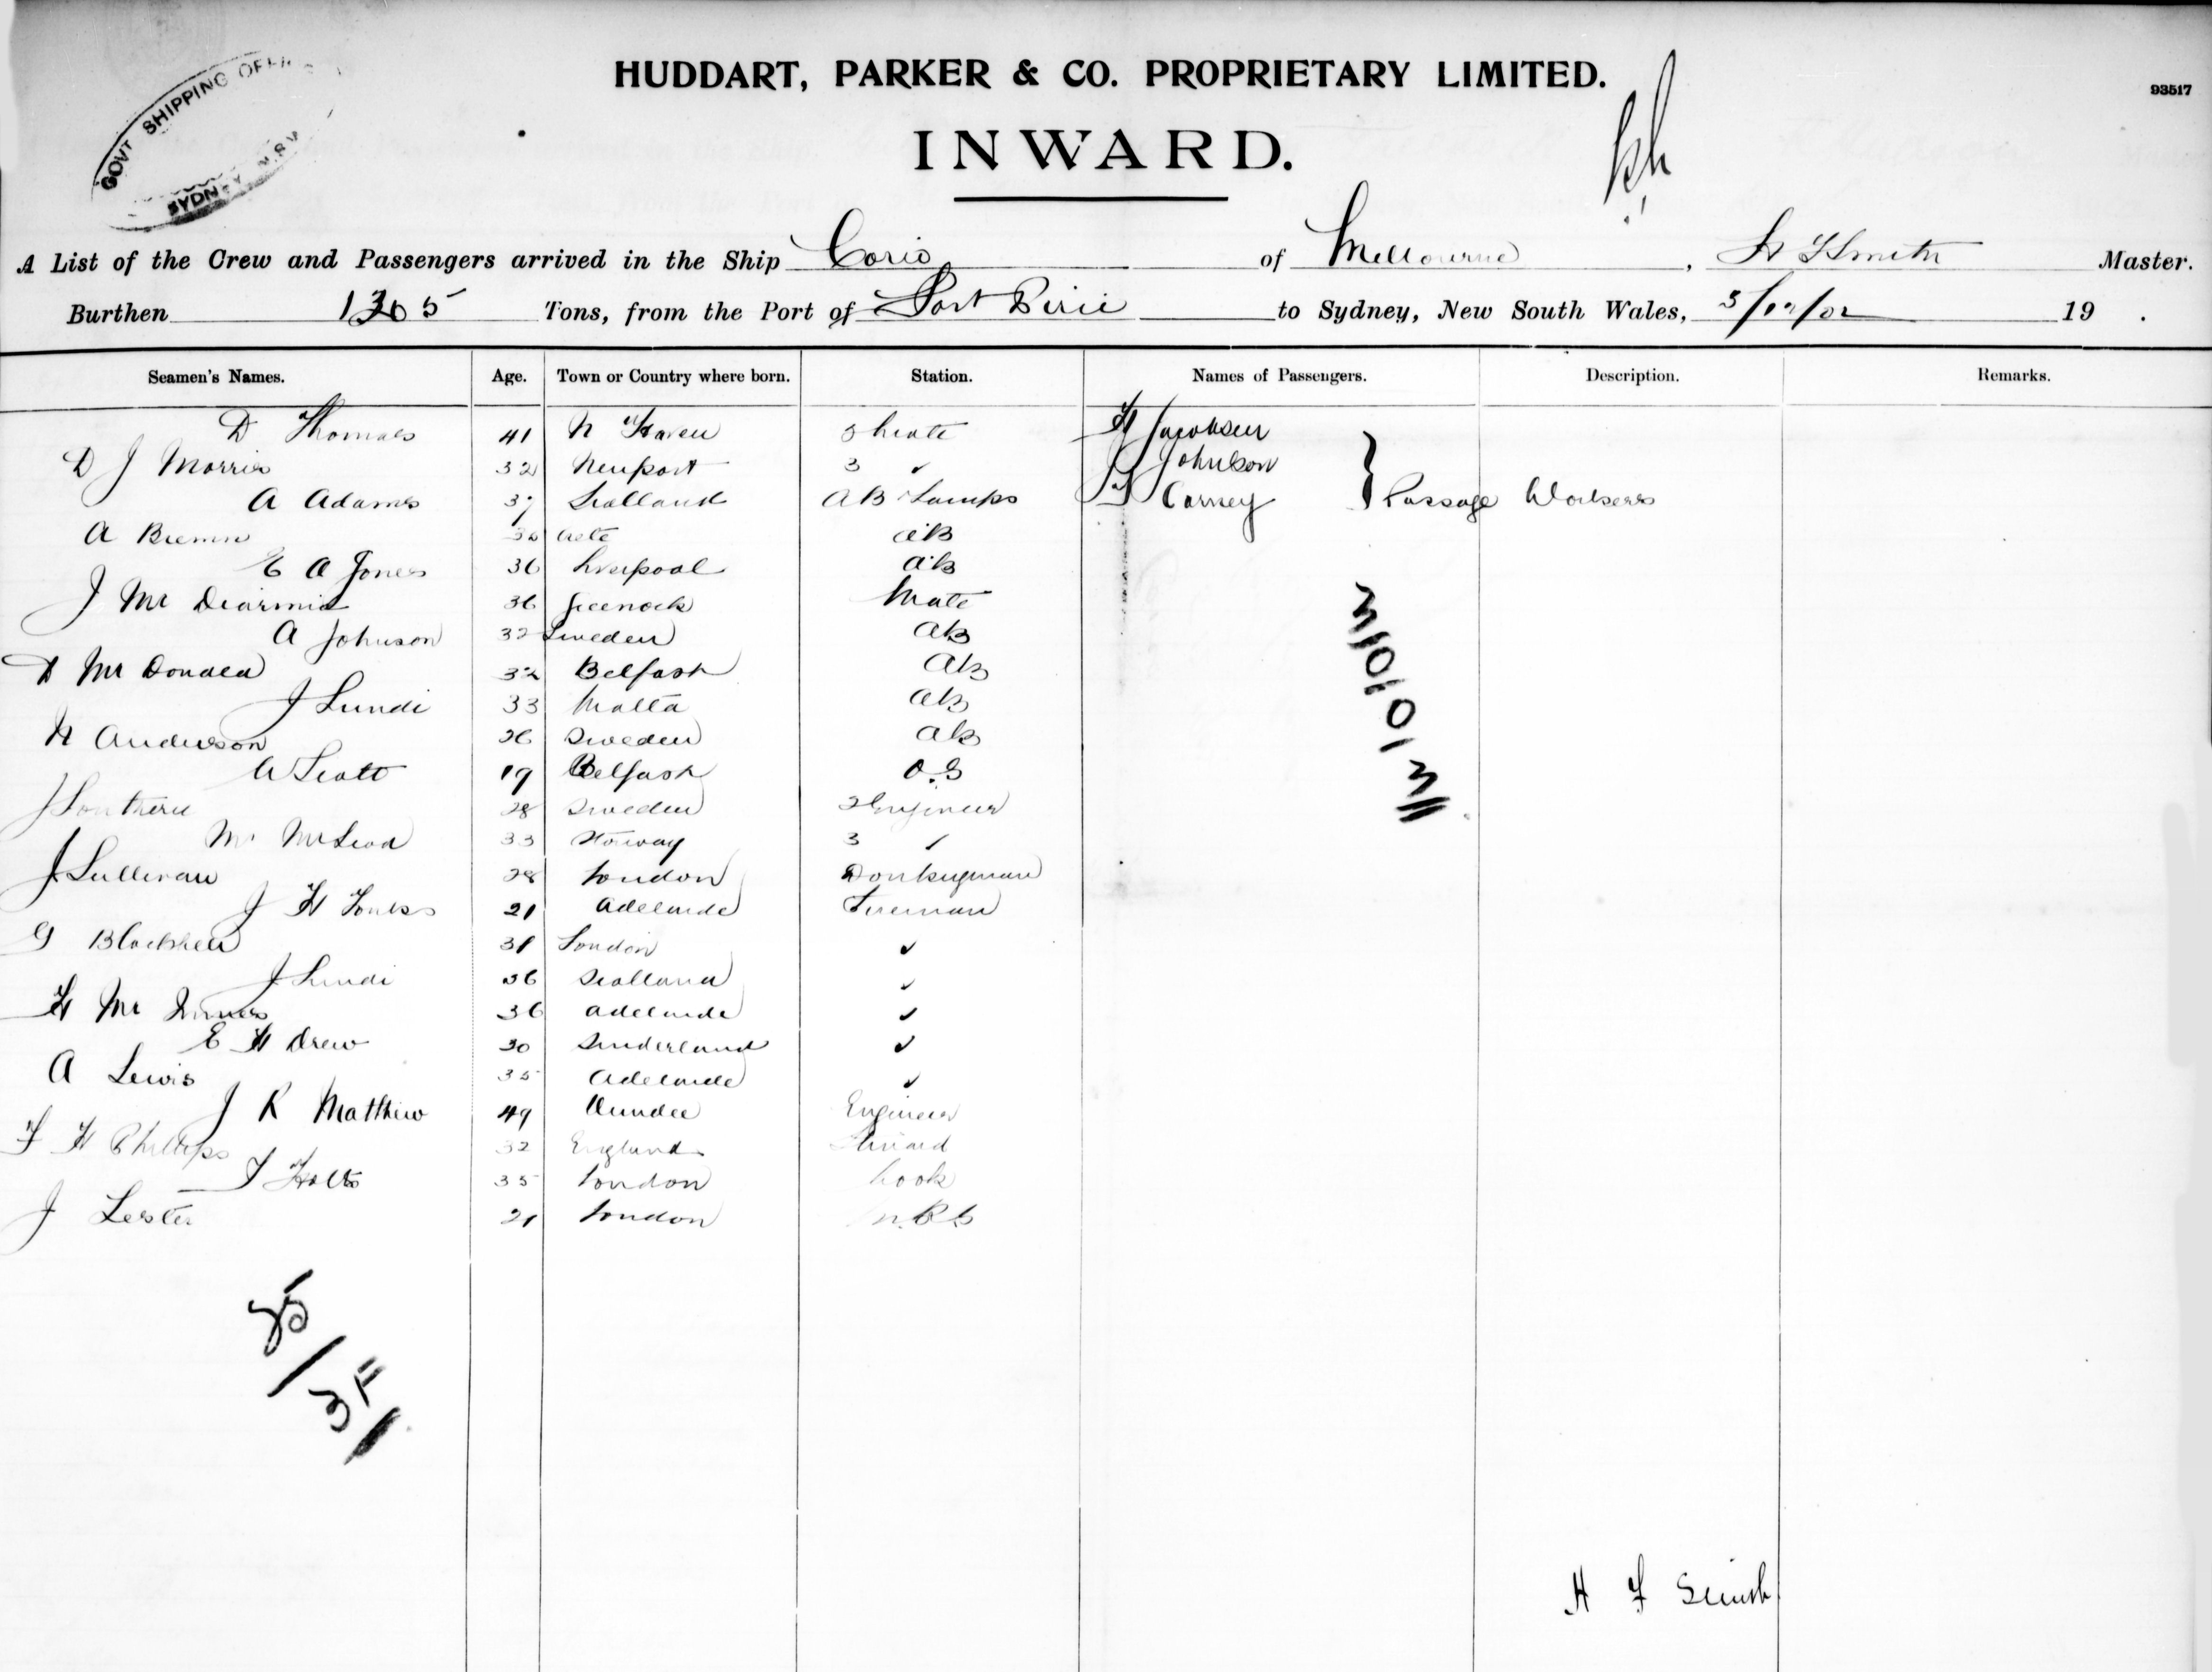 GOVT SHIPPING OFFI
SYDNEY N.S.W
HUDDART, PARKER & CO. PROPRIETARY LIMITED.
93517
INWARD.
A List of the Crew and Passengers arrived in the Ship Corio of Melbourne, H F Smith Master.
Burthen 1305 Tons, from the Port of Port Pirie to Sydney, New South Wales, 19 .
Seamen's Names. Age. Town or Country where born. Station. Names of Passengers. Description. Remarks.
D Thomas 41 N Haven 2 Mate H Jacobsen
D J Morris 32 Newport 3 ✓ J Johnson
A Adams 37 Scotland AB Lamps Carney } Passage Workers
A AB
E A Jones 36 Liverpool AB
J Mc Diarmid 36 Greenock Mate
A Johnson 32 Sweden AB
D Mc Donald 32 Belfast AB
J Lundi 33 Malta AB
H Anderson 26 Sweden AB
W Scott 19 Belfast O.S
J Southern 28 Sweden 2 Engineer
M McLeod 33 Norway 3 ✓
J Sullivan 28 London Donkeyman
J H 21 Adelaide Fireman
G 31 London ✓
J Lundi 36 Scotland ✓
H Mc Innes 36 Adelaide ✓
E H Drew 30 Sunderland ✓
A Lewis 35 Adelaide ✓
J R Matthew 49 Dundee Engineer
F H Phillips 32 England Steward
T Holts 35 London Cook
J Lester 21 London
3/0/0/3
25/3
H F Smith